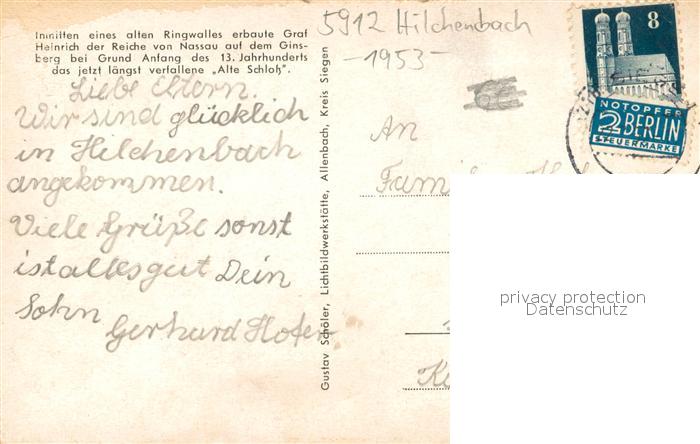 Inmitten eines alten Ringwalles erbaute Graf
Heinrich der Reiche von Nassau auf dem Gins-
berg bei Grund Anfang des 13. Jahrhunderts
das jetzt längst verfallene „Alte Schloß".
Liebe Eltern.
Wir sind glücklich
in Hilchenbach
angekommen.
Viele Grüße sonst
ist alles gut Dein
Sohn
Gerhard Hofer
Gustav Schöler, Lichtbildwerkstätte, Allenbach, Kreis Siegen
5912 Hilchenbach
-1953-
An
8
NOTOPFER
2 BERLIN
STEUERMARKE
privacy protection
Datenschutz